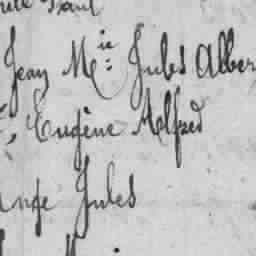 Paul
Jean M.ie Jules Alber
Eugène Alfred
ange Jules